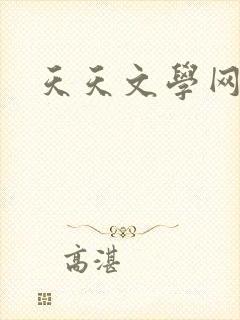 天天文學网
高湛